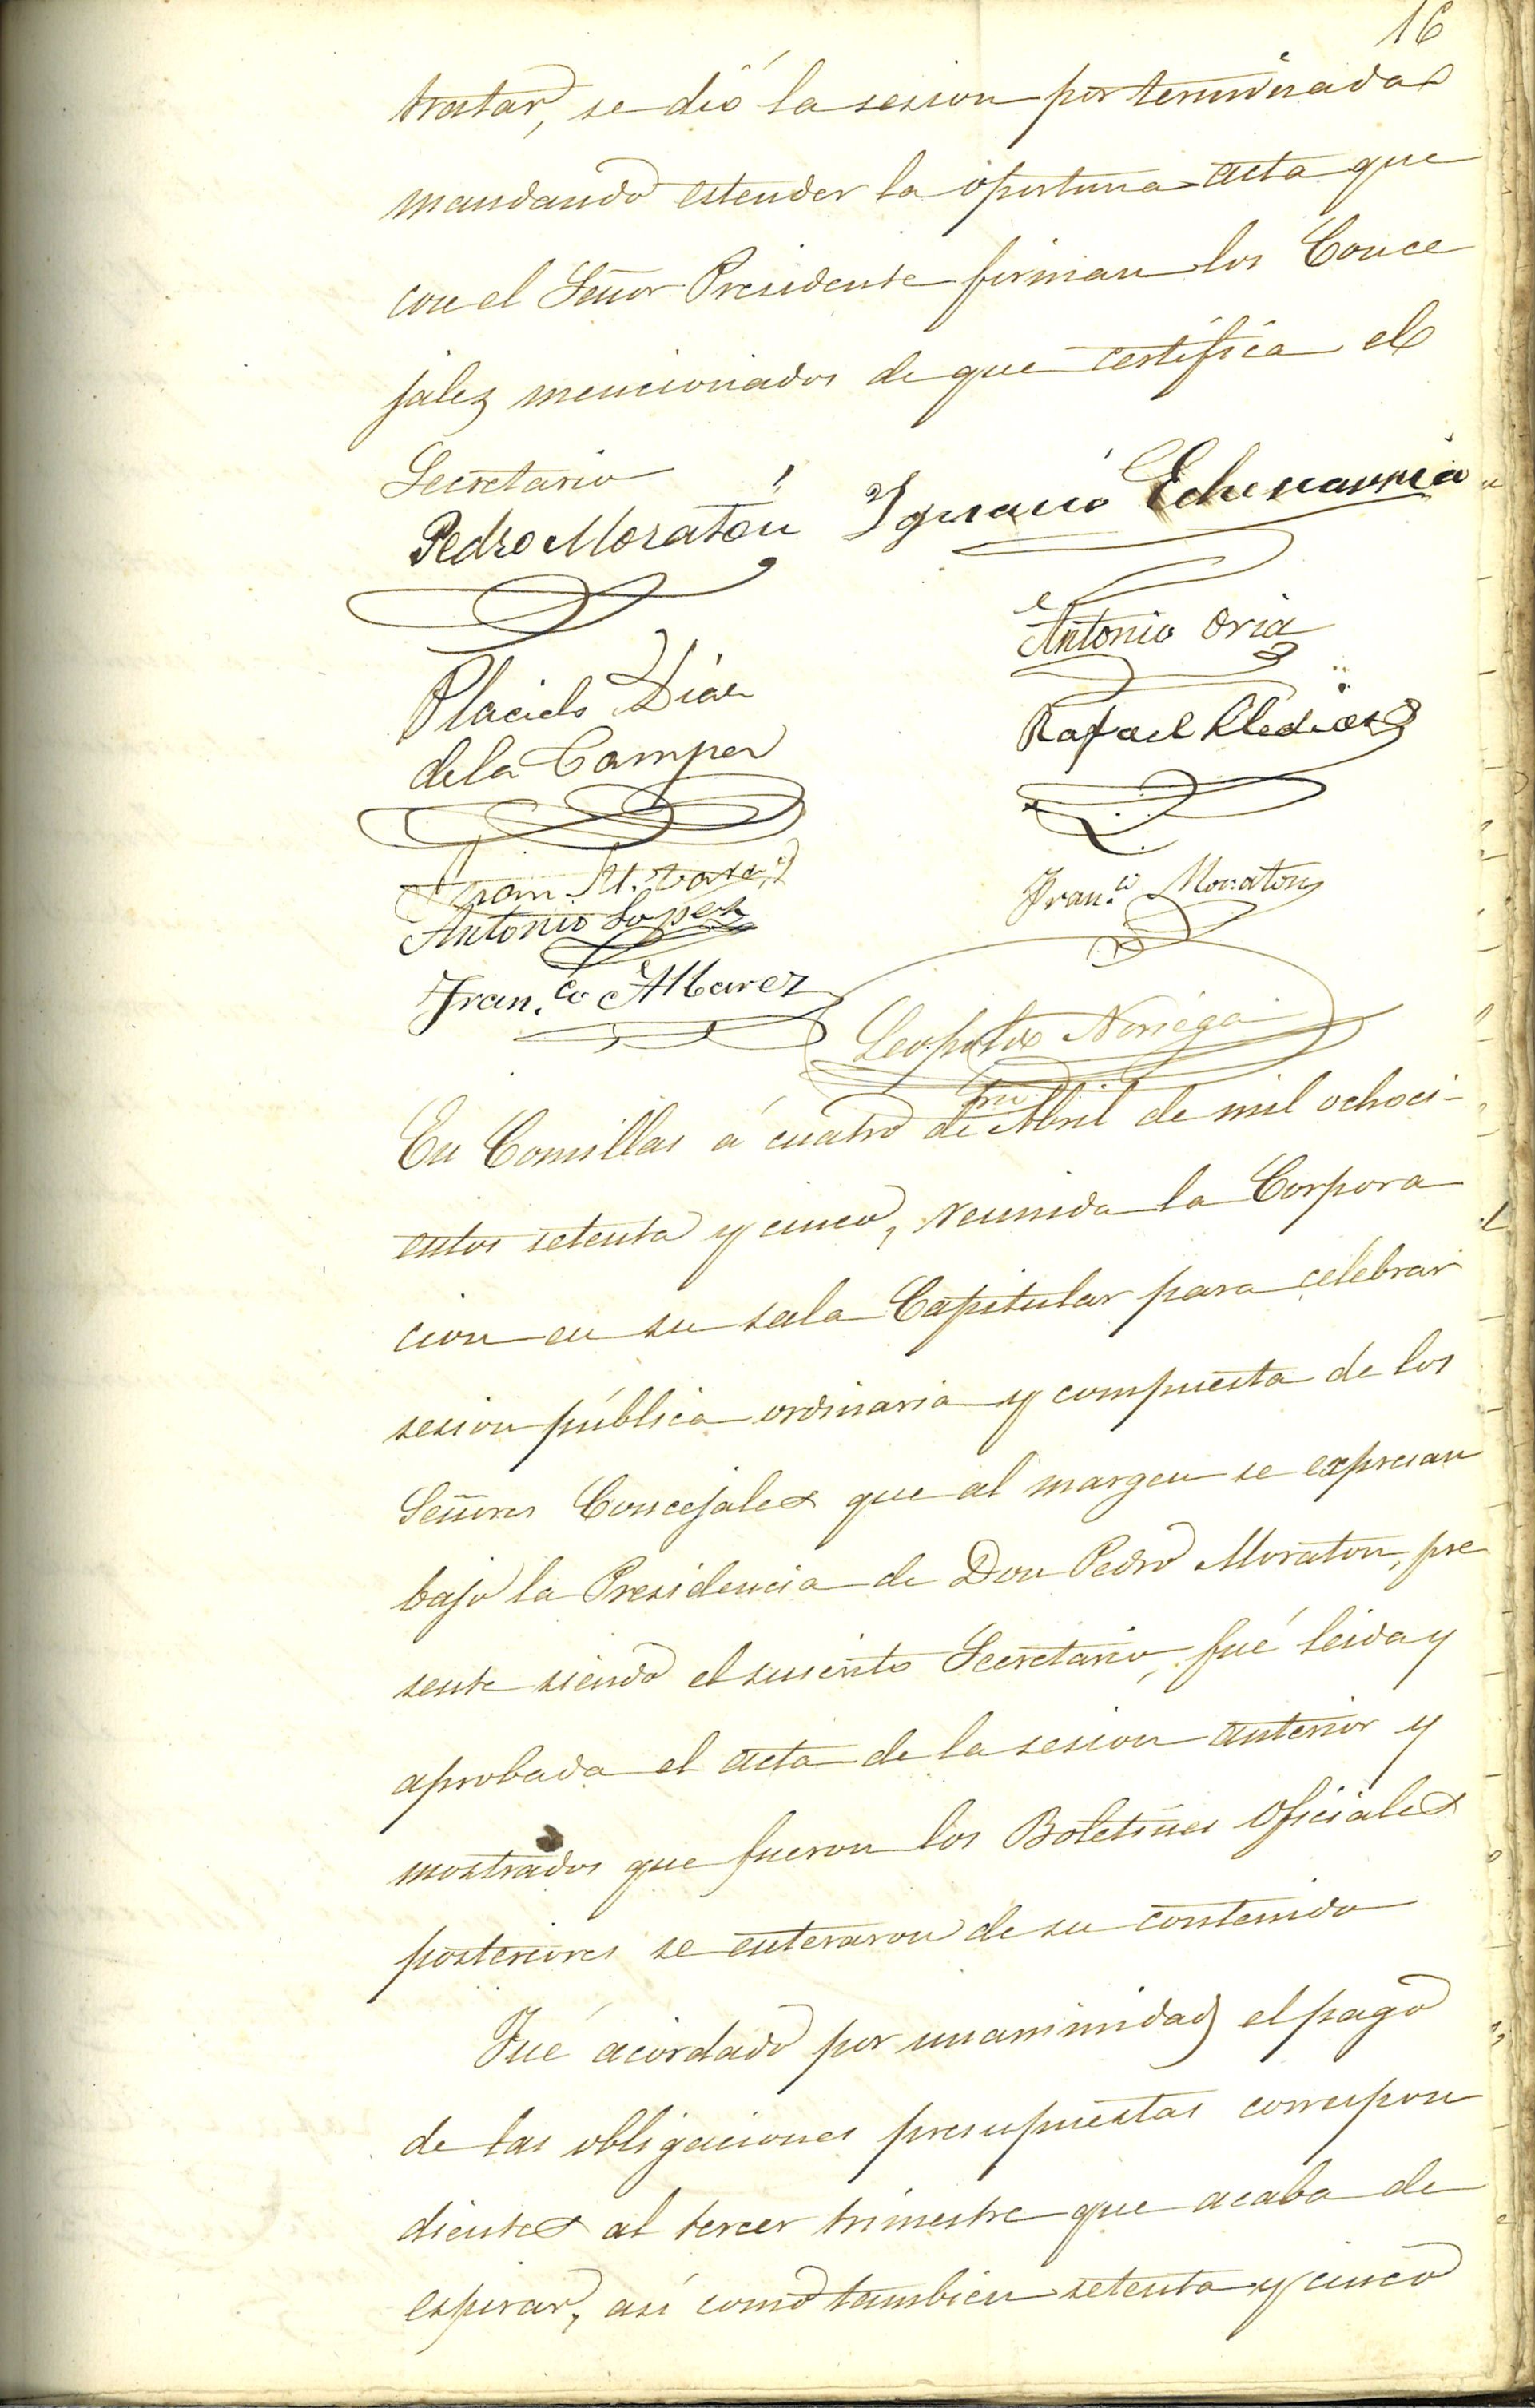 16
tratar, se dió la sesion por terminada
mandando estender la oportuna acta que
con el Señor Presidente firman los Conce
jales mencionados de que certifica el
Secretario
Pedro Moratón Ygnacio Echevarria
Antonio Oria
Placido Diaz
de la Campa
Rafael
Juan M.
Fran.co Moraton
Antonio Lopez
Fran.co Albarez
Leopoldo Noriega
Srio
En Comillas á cuatro de Abril de mil ochoci-
entos setenta y cinco, reunida la Corpora
cion en su sala Capitular para celebrar
sesion pública ordinaria y compuesta de los
Señores Concejales que al margen se expresan
bajo la Presidencia de Don Pedro Moraton, pre
sente siendo el suscrito Secretario, fué leida y
aprobada el acta de la sesion anterior y
mostrados que fueron los Boletines Oficiales
posteriores se enteraron de su contenido
Fué acordado por unanimidad el pago
de las obligaciones presupuestas correspon
dientes al tercer trimestre que acaba de
espirar, así como tambien setenta y cinco